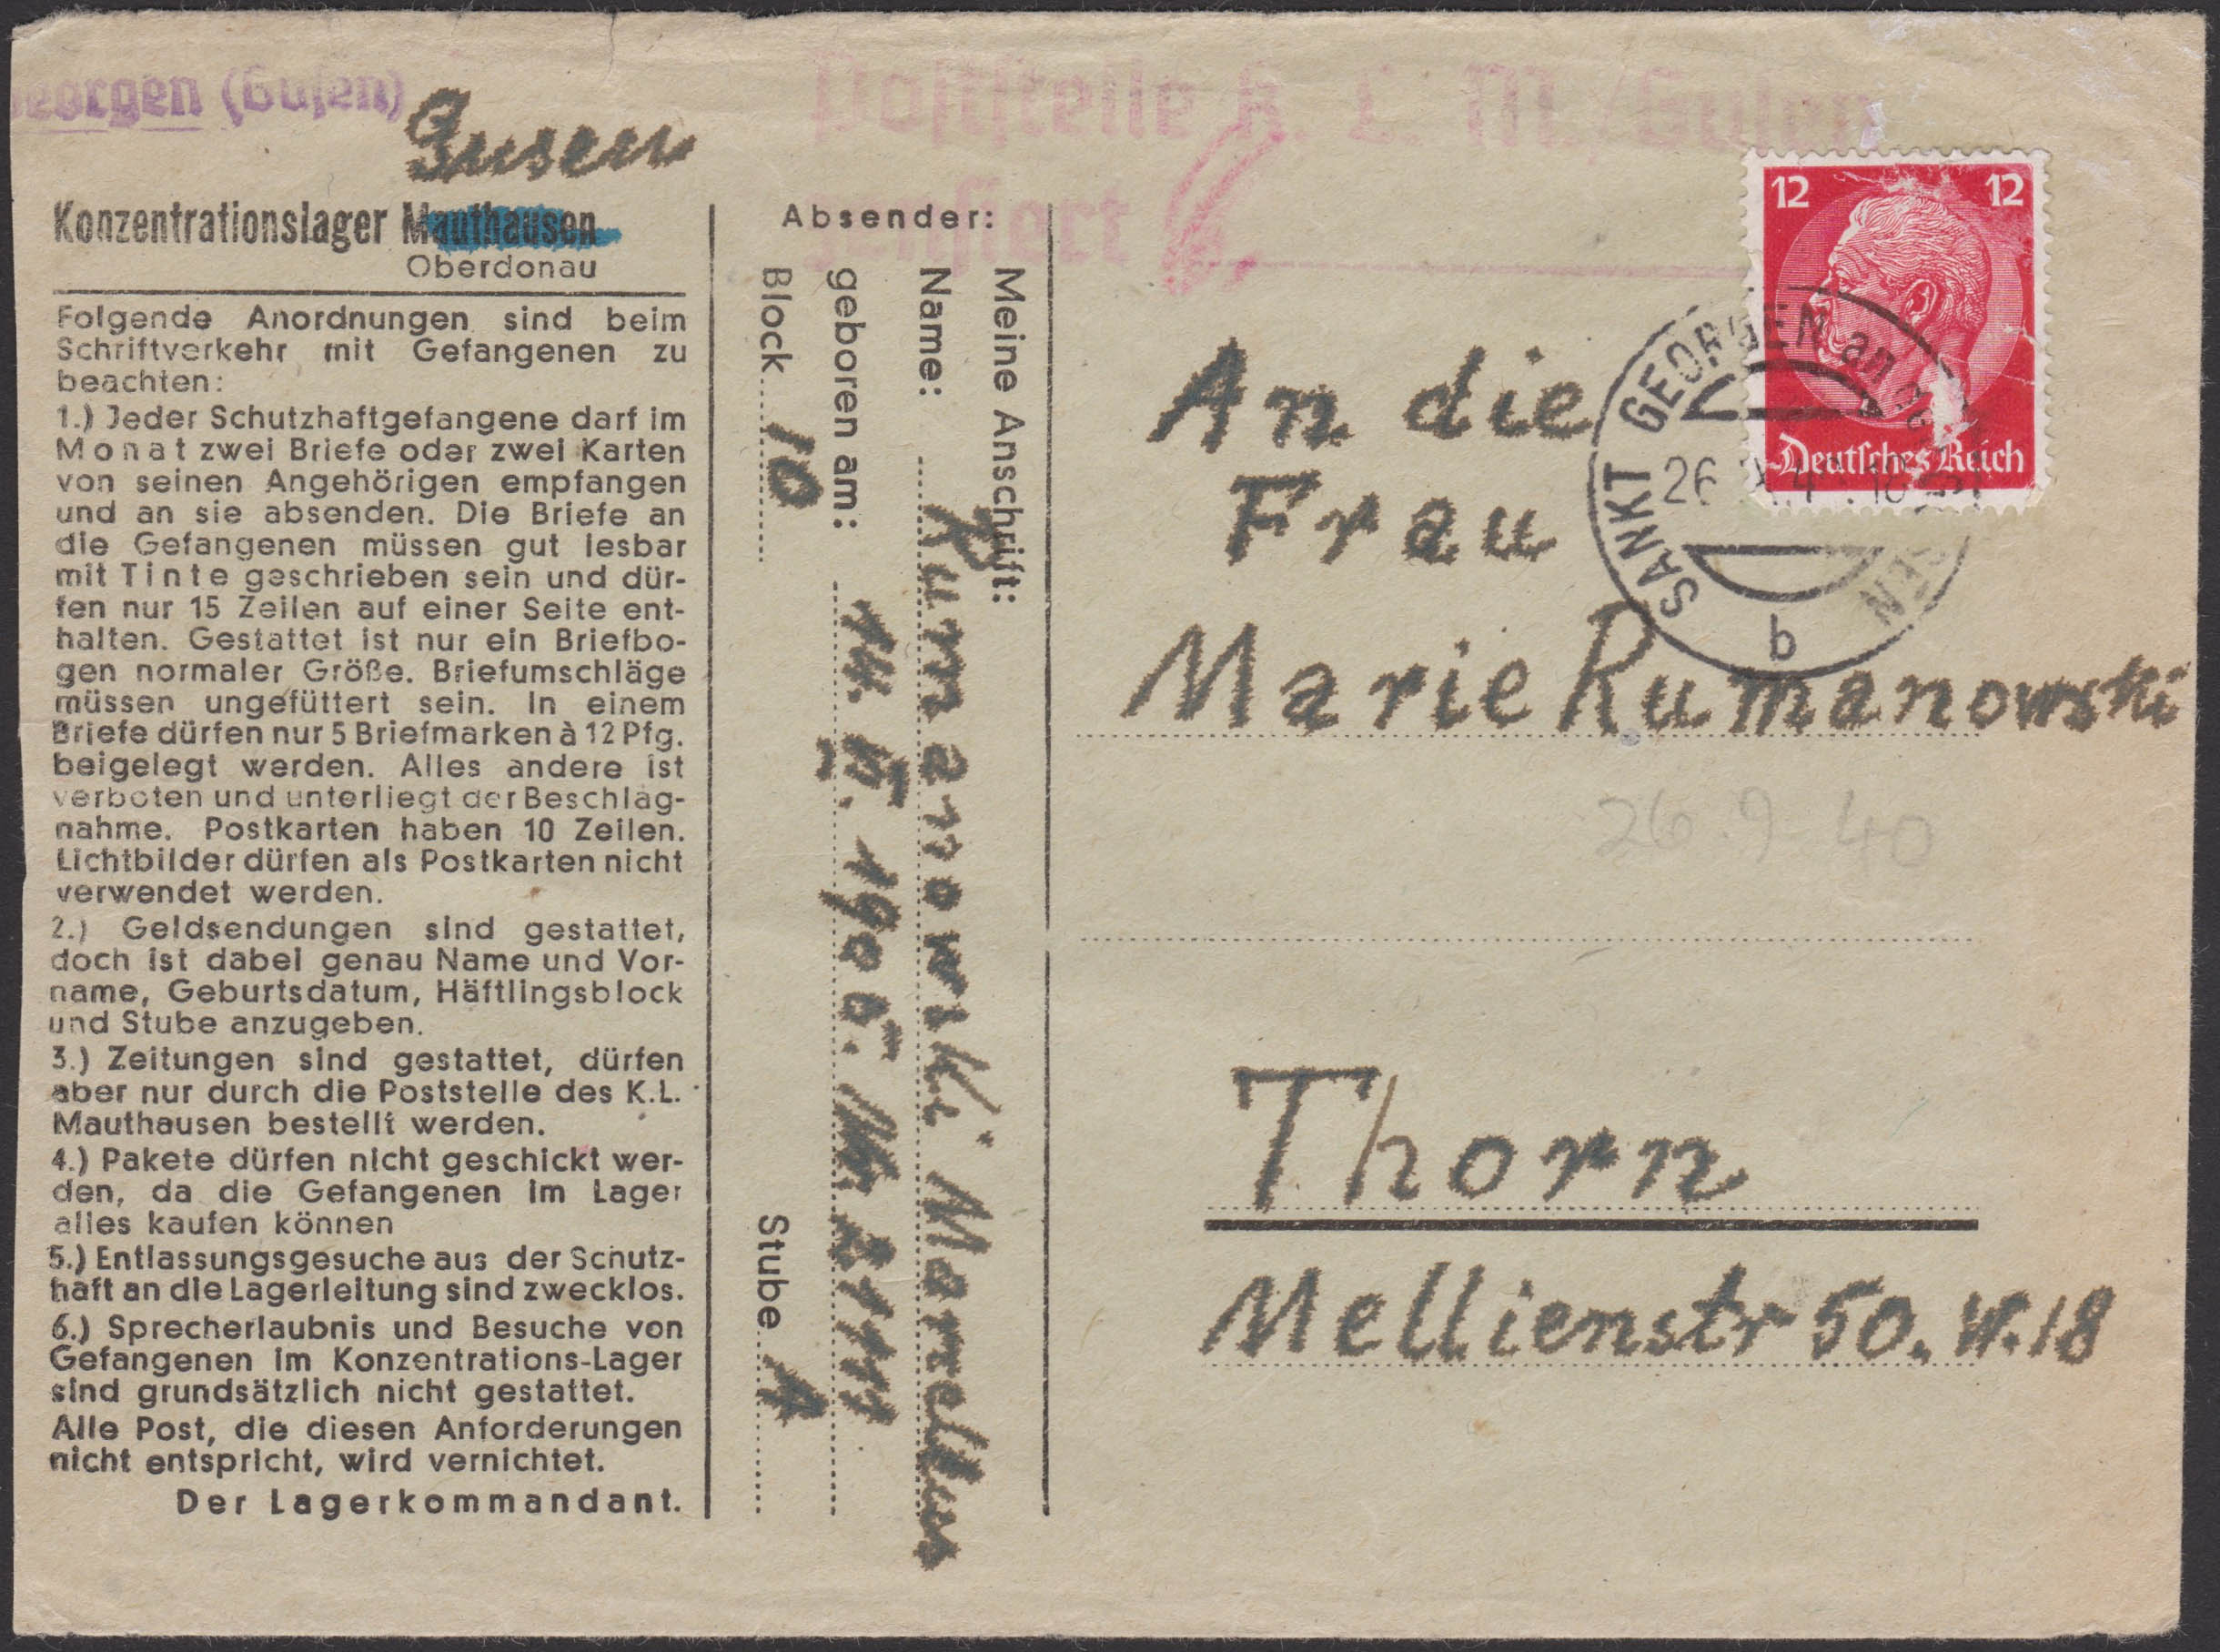 Georgen (Gusen)
Gusen
Poststelle K. L. M./Gusen
zensiert
Konzentrationslager Mauthausen
Oberdonau
Folgende Anordnungen sind beim
Schriftverkehr mit Gefangenen zu
beachten:
1.) Jeder Schutzhaftgefangene darf im
Monat zwei Briefe oder zwei Karten
von seinen Angehörigen empfangen
und an sie absenden. Die Briefe an
die Gefangenen müssen gut lesbar
mit Tinte geschrieben sein und dür-
fen nur 15 Zeilen auf einer Seite ent-
halten. Gestattet ist nur ein Briefbo-
gen normaler Größe. Briefumschläge
müssen ungefüttert sein. In einem
Briefe dürfen nur 5 Briefmarken à 12 Pfg.
beigelegt werden. Alles andere ist
verboten und unterliegt der Beschlag-
nahme. Postkarten haben 10 Zeilen.
Lichtbilder dürfen als Postkarten nicht
verwendet werden.
2.) Geldsendungen sind gestattet,
doch ist dabei genau Name und Vor-
name, Geburtsdatum, Häftlingsblock
und Stube anzugeben.
3.) Zeitungen sind gestattet, dürfen
aber nur durch die Poststelle des K.L.
Mauthausen bestellt werden.
4.) Pakete dürfen nicht geschickt wer-
den, da die Gefangenen im Lager
alles kaufen können
5.) Entlassungsgesuche aus der Schutz-
haft an die Lagerleitung sind zwecklos.
6.) Sprecherlaubnis und Besuche von
Gefangenen im Konzentrations-Lager
sind grundsätzlich nicht gestattet.
Alle Post, die diesen Anforderungen
nicht entspricht, wird vernichtet.
Der Lagerkommandant.
Absender:
Meine Anschrift:
Name: Rumanowski Marcellus
geboren am: 1906
Block 10 Stube A
12 12
Deutsches Reich
SANKT GEORGEN an der
26
b
An die
Frau
Marie Rumanowski
26.9-40
Thorn
Mellienstr 50. W.18